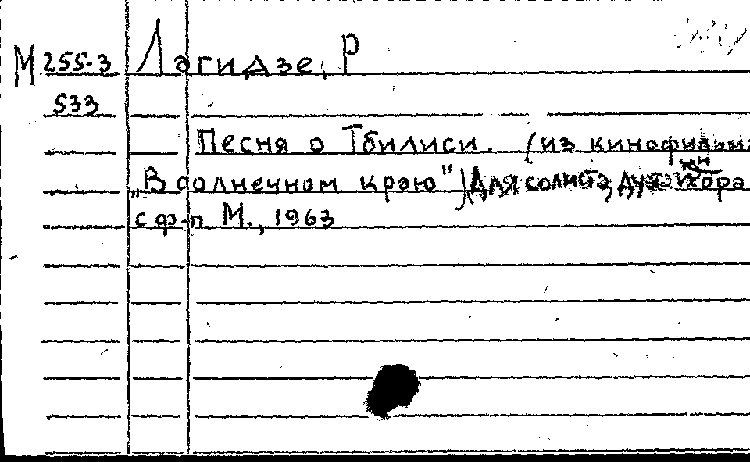 М 255-3 Лагидзе, Р
533
Песня о Тбилиси. (из кинофильма
„В солнечном краю") Для солиста, дуэта и хора
с ф-п М., 1963